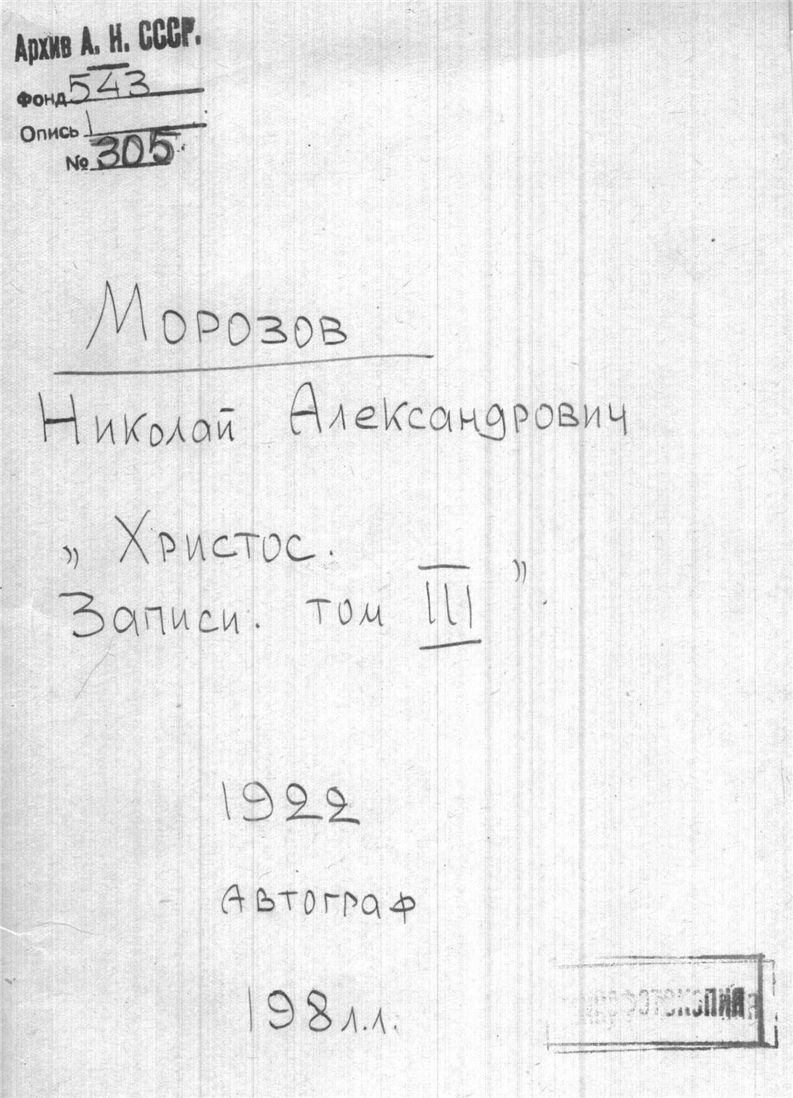 Архив А. Н. СССР.
Фонд 543
Опись 1
№ 305
Морозов
Николай Александрович
„ Христос.
Записи. том III ”.
1922
Автограф
198 л.л.